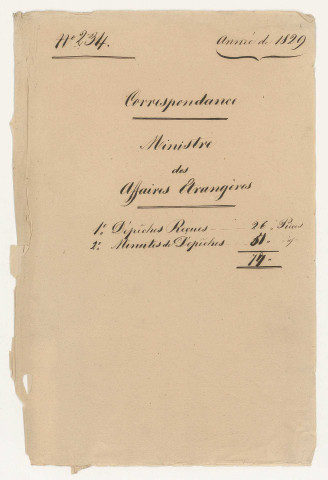 N° 234.
Année de 1829
Correspondance
Ministre
des
Affaires Etrangères
1°. Dépêches Reçues 26. Pièces
2°. Minutes de Dépêches 51.
77.